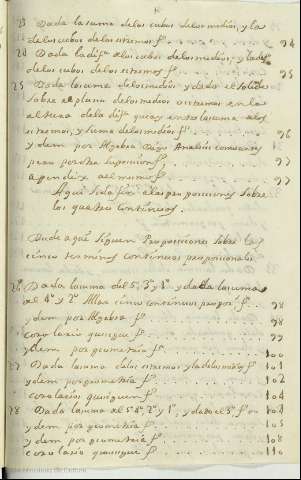 23 Dada la suma de los cubos de los medios, y la
de los cubos de los estremos fº. 94
24 Dada la difª de los cubos de los medios, y la difª
de los cubos de los estremos fº. 95
25 Dada la suma de los medios y dado el solido
sobre el plano de los medios o estremos en la
altura de la difª que ay entre la suma de los
estremos, y suma de los medios fº.
y dem por Algebra
pero por otra suposicion fº. 97
apendix al mismo fº. 97
Aqui se da fin a las proposiciones sobre
los quatro continuos.
Desde aqui siguen Proposiciones sobre los
cinco terminos continuos proporcionales
26 Dada la suma del 5º, 3º, y 1º y dada la suma
del 4º y 2º Allar cinco continuos propor. fº. 98
ydem por Algebra fº. 98
corolario quinque fº. 99
ydem por geometria fº. 100
27 Dada la suma de los estremos y la de los medios fº 101
ydem por geometria fº. 102
corolarios quinque fº. 104
28 Dada la suma del 5º 4º, 2º y 1º, y dado el 3º fº 104
ydem por geometria fº. 105
y dem por geometria fº. 108
corolario quinque fº. 110